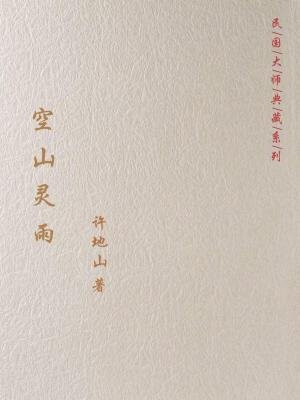 民国大师典藏系列
空山灵雨
许地山著